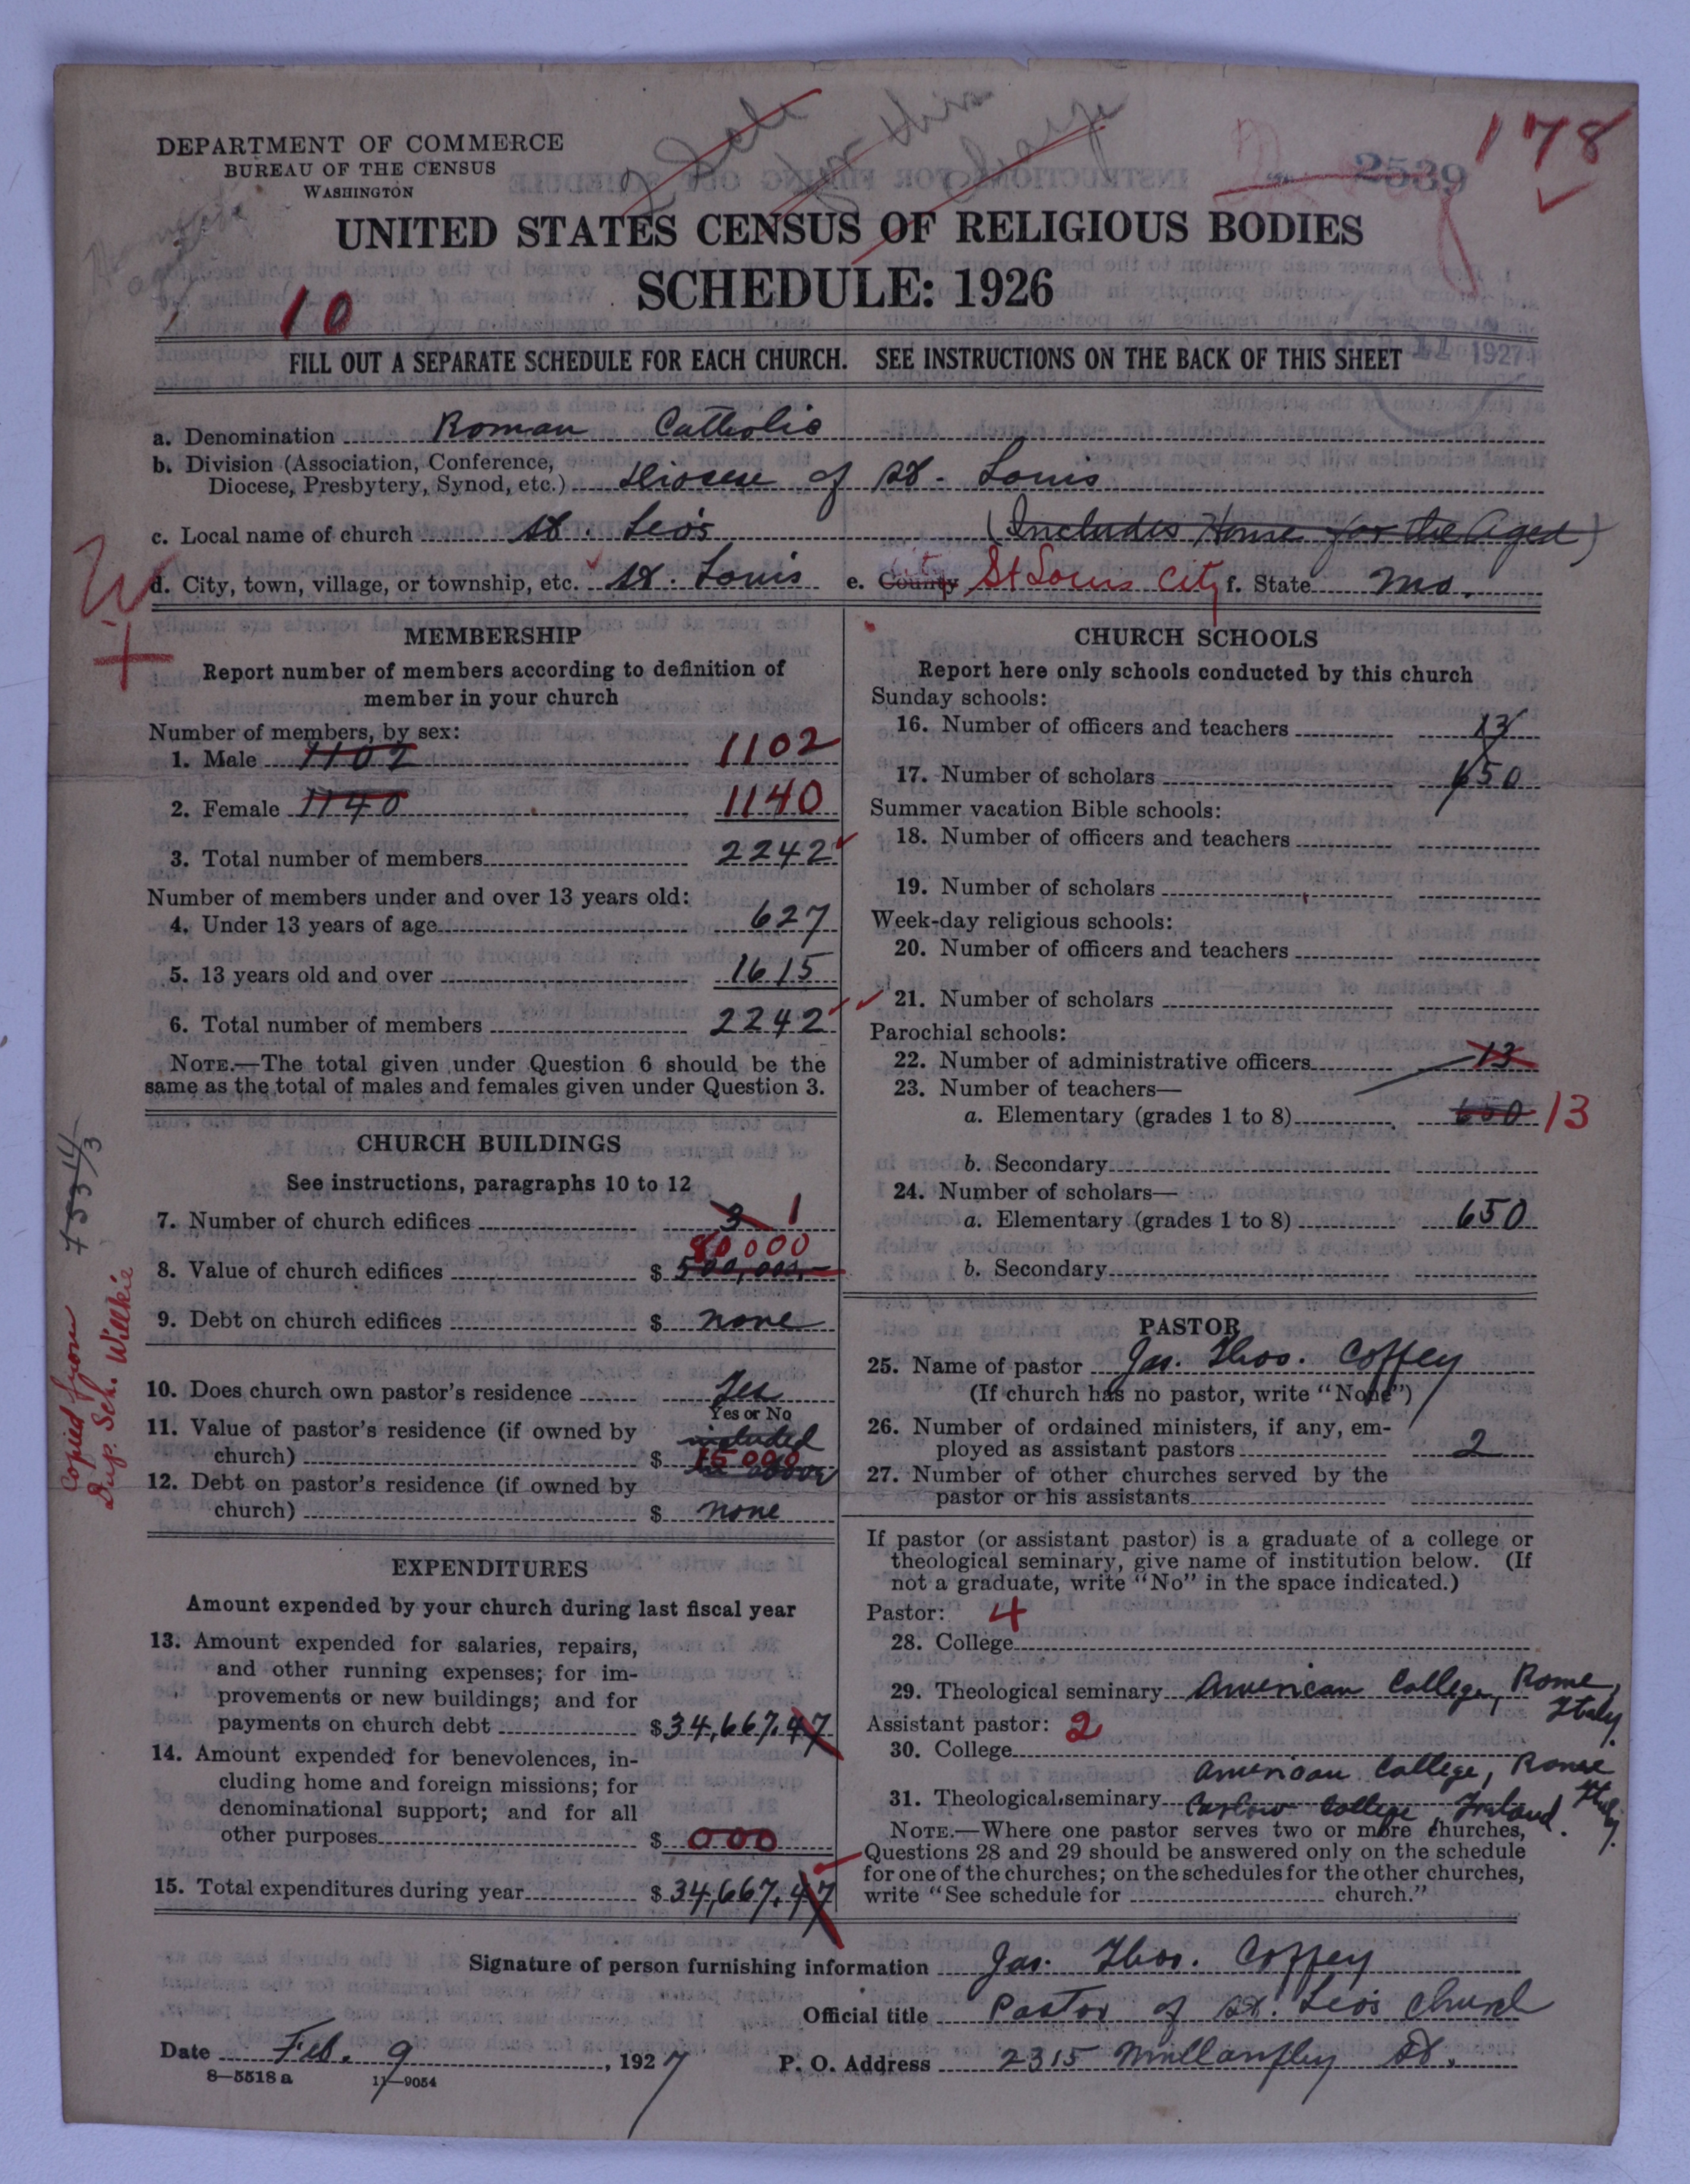 178
2539
DEPARTMENT OF COMMERCE
BUREAU OF THE CENSUS
WASHINGTON
UNITED STATES CENSUS OF RELIGIOUS BODIES
SCHEDULE: 1926
10
1927
FILL OUT A SEPARATE SCHEDULE FOR EACH CHURCH. SEE INSTRUCTIONS ON THE BACK OF THIS SHEET
a. Denomination Roman Catholic
b. Division (Association, Conference,
Diocese, Presbytery, Synod, etc.) Diocese of St. Louis
c. Local name of church St. Leo's (Includes Home for the Aged)
d. City, town, village, or township, etc. St. Louis e. County City St Louis City f. State Mo.
MEMBERSHIP
Report number of members according to definition of
member in your church
Number of members, by sex:
1. Male 1102 1102
2. Female 1140 1140
3. Total number of members 2242
Number of members under and over 13 years old:
4. Under 13 years of age 627
5. 13 years old and over 1615
6. Total number of members 2242
NOTE.—The total given under Question 6 should be the
same as the total of males and females given under Question 3.
CHURCH BUILDINGS
See instructions, paragraphs 10 to 12
7. Number of church edifices 3 1
80000
8. Value of church edifices $ 500,000
9. Debt on church edifices $ none
10. Does church own pastor's residence Yes
Yes or No
11. Value of pastor's residence (if owned by included
church) $ 15000 in above
12. Debt on pastor's residence (if owned by
church) $ none
EXPENDITURES
Amount expended by your church during last fiscal year
13. Amount expended for salaries, repairs,
and other running expenses; for im-
provements or new buildings; and for
payments on church debt $ 34,667.47
14. Amount expended for benevolences, in-
cluding home and foreign missions; for
denominational support; and for all
other purposes $ 000
15. Total expenditures during year $ 34,667.47
Copied from
Dup. Sch. Willkie
CHURCH SCHOOLS
Report here only schools conducted by this church
Sunday schools:
16. Number of officers and teachers 13
17. Number of scholars 650
Summer vacation Bible schools:
18. Number of officers and teachers
19. Number of scholars
Week-day religious schools:
20. Number of officers and teachers
21. Number of scholars
Parochial schools:
22. Number of administrative officers 13
23. Number of teachers—
a. Elementary (grades 1 to 8) 650 13
b. Secondary
24. Number of scholars—
a. Elementary (grades 1 to 8) 650
b. Secondary
PASTOR
25. Name of pastor Jas. Thos. Coffey
(If church has no pastor, write "None")
26. Number of ordained ministers, if any, em-
ployed as assistant pastors 2
27. Number of other churches served by the
pastor or his assistants
If pastor (or assistant pastor) is a graduate of a college or
theological seminary, give name of institution below. (If
not a graduate, write "No" in the space indicated.)
Pastor: 4
28. College
29. Theological seminary American College, Rome, Italy.
Assistant pastor: 2
30. College
American College, Rome Italy.
31. Theological seminary Carlow College, Ireland.
NOTE.—Where one pastor serves two or more churches,
Questions 28 and 29 should be answered only on the schedule
for one of the churches; on the schedules for the other churches,
write "See schedule for church."
Signature of person furnishing information Jas. Thos. Coffey
Official title Pastor of St. Leo's Church
Date Feb. 9, 1927 P. O. Address 2315 Mullanphy St.
8—5518 a 11—9054